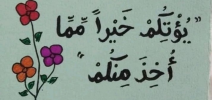 "يُؤْتِكُمْ خَيْراً مِّمَّا
أُخِذَ مِنكُمْ"